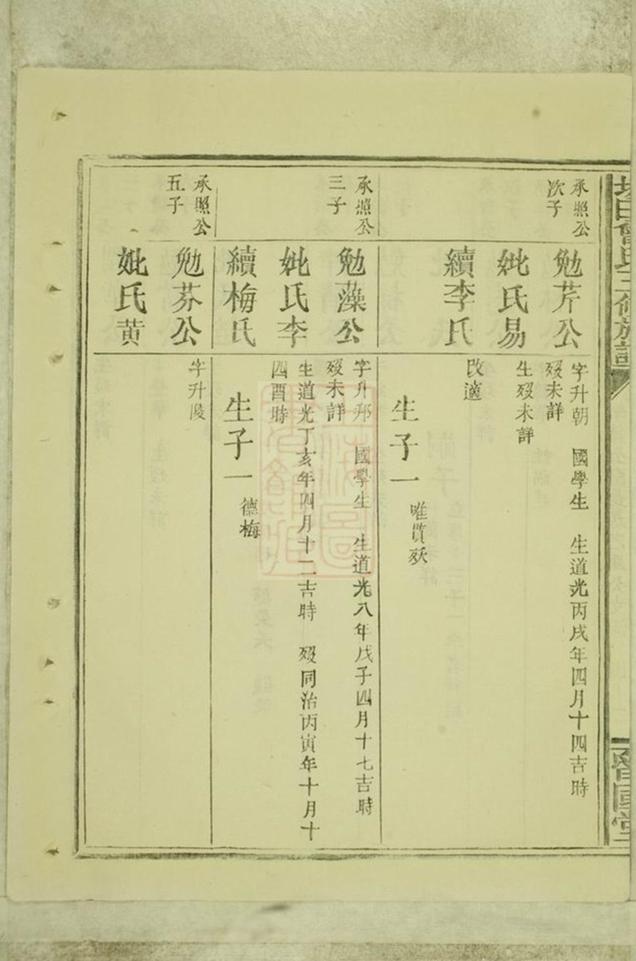 三修族譜
魯國堂
承照公
次子
勉芹公
字升朝 國學生 生道光丙戌年四月十四吉時
歿未詳
妣氏易
生歿未詳
續李氏
改適
生子一
唯貫殀
承照公
三子
勉藻公
字升邦 國學生 生道光八年戊子四月十七吉時
歿未詳
妣氏李
生道光丁亥年四月十二吉時 歿同治丙寅年十月十
四酉時
續梅氏
生子一
德梅
承照公
五子
勉芬公
字升陵
妣氏黃